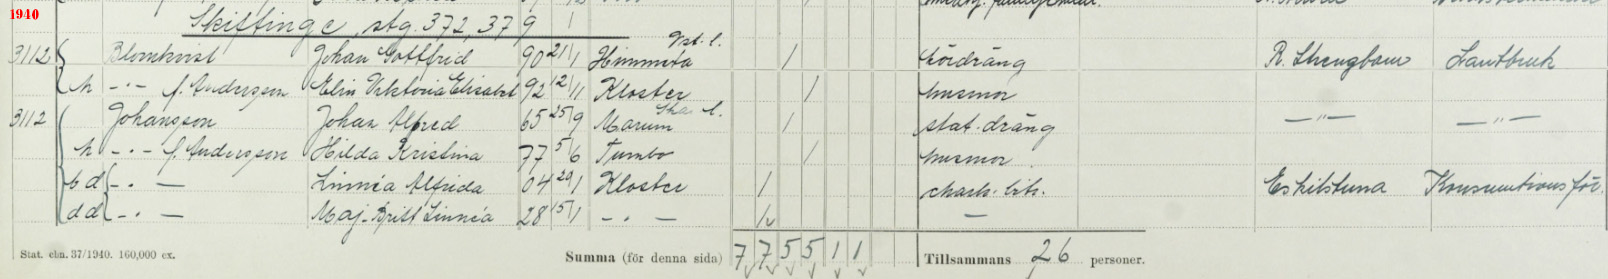 1940
Skiftinge, stg. 372, 379
Vst. l.
3112 Blomkvist Johan Gottfrid 90 21/1 Himmeta / kördräng R. Strengbom Lantbruk
h -"- f. Andersson Elin Viktoria Elisabet 92 12/11 Kloster / husmor
Ska l.
3112 Johansson Johan Alfred 65 25/9 Marum / stat.dräng -"- -"-
h -"- f. Andersson Hilda Kristina 77 5/6 Tumbo / husmor
bd -"- Linnéa Alfrida 04 29/1 Kloster / chark. bitr. Eskilstuna Konsumtionsför.
dd -"- Maj-Britt Linnéa 28 15/1 -"- / —
Stat. ebn. 37/1940. 160,000 ex. Summa (för denna sida) 7 7 5 5 1 1 Tillsammans 26 personer.